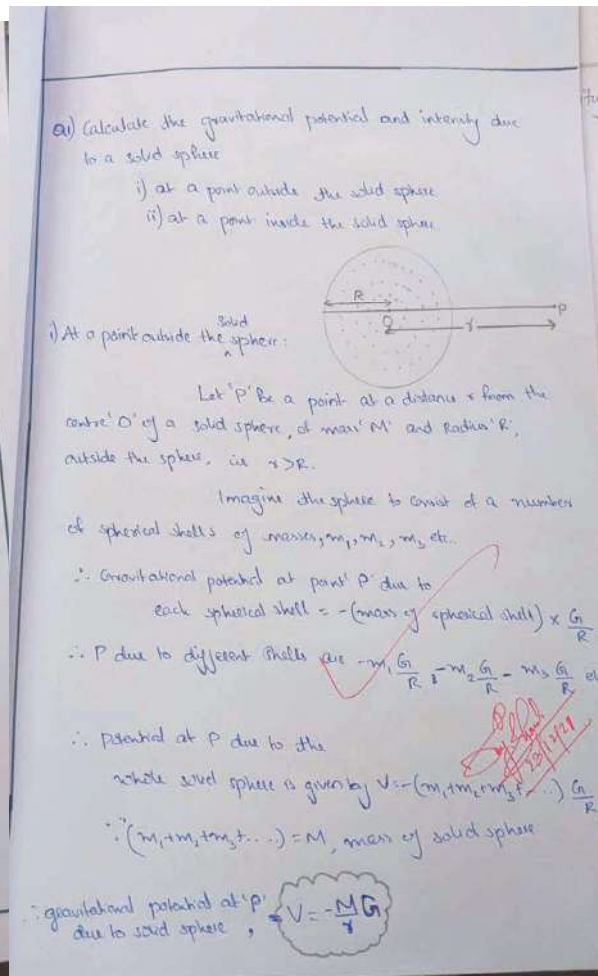 Q1) Calculate the gravitational potential and intensity due
to a solid sphere
i) at a point outside the solid sphere
ii) at a point inside the solid sphere
R
P
O
r
i) At a point outside the solid sphere:
Let 'P' Be a point at a distance r from the
centre 'O' of a solid sphere, of mass 'M' and Radius 'R',
outside the sphere, i.e r>R.
Imagine the sphere to consist of a number
of spherical shells of masses, m₁, m₂, m₃ etc..
∴ Gravitational potential at point 'P' due to
each spherical shell = -(mass of spherical shell) × G/R
∴ P due to different shells are -m₁ G/R, -m₂ G/R - m₃ G/R
∴ potential at P due to the
whole solid sphere is given by V=-(m₁+m₂+m₃+...) G/R
∵ (m₁+m₂+m₃+...) = M, mass of solid sphere
23/12/21
∴ gravitational potential at 'P'
due to solid sphere, = V = -M/r G